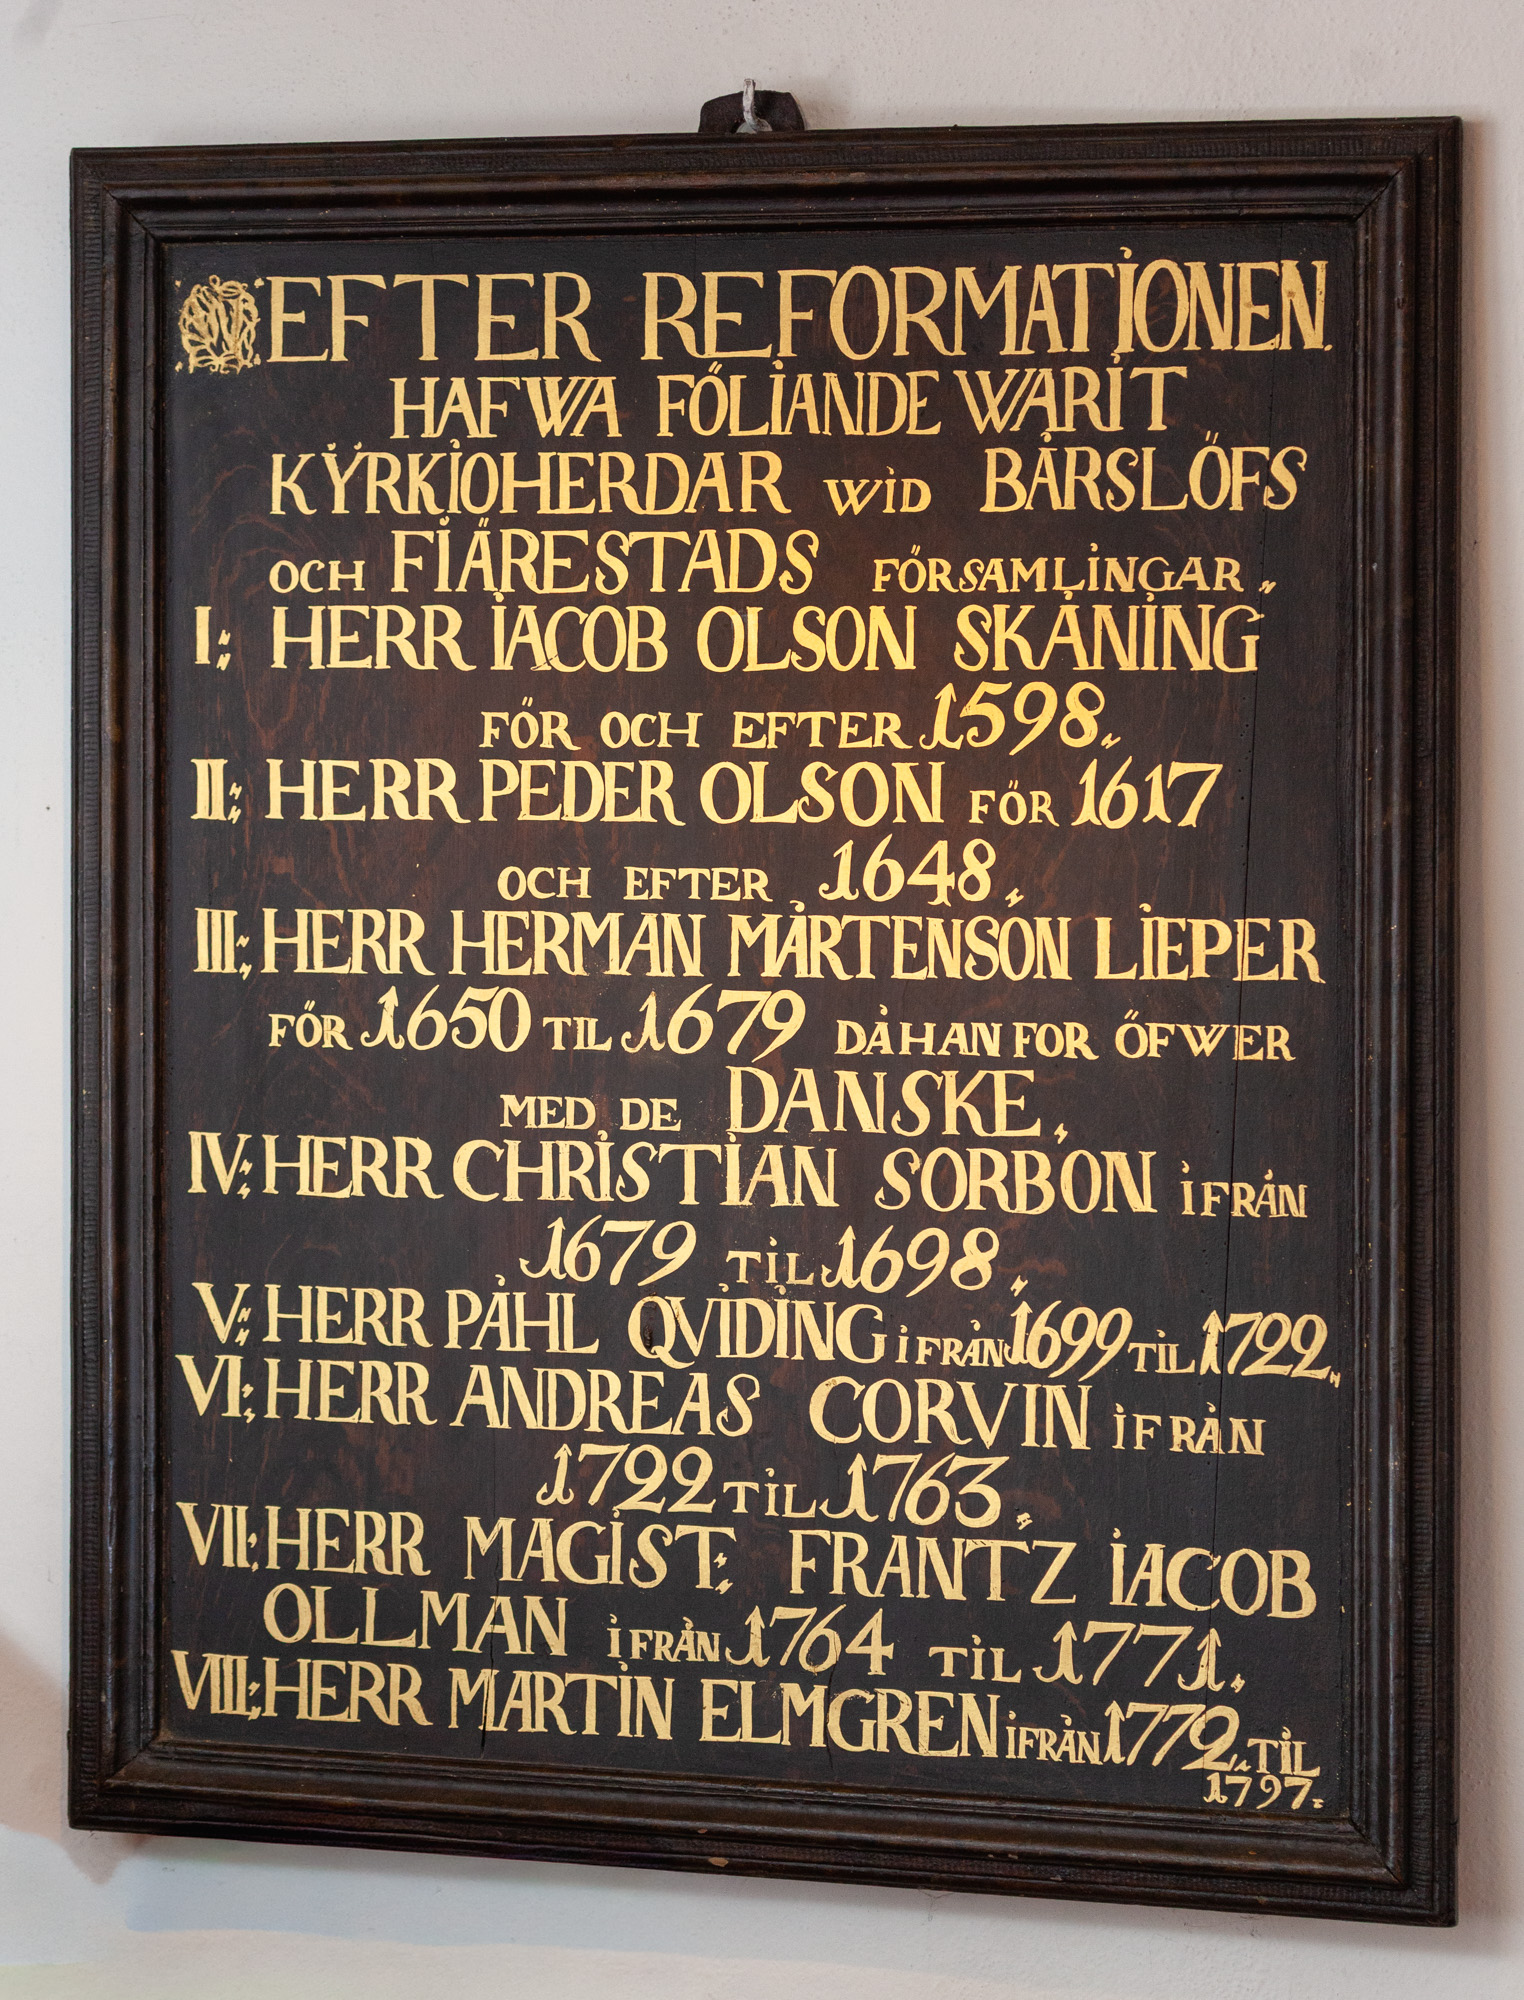 EFTER REFORMATIONEN.
HAFWA FÖLIANDE WARIT
KYRKIOHERDAR WID BÅRSLÖFS
OCH FIÄRESTADS FÖRSAMLINGAR.
I: HERR IACOB OLSON SKÅNING
FÖR OCH EFTER 1598.
II: HERR PEDER OLSON FÖR 1617
OCH EFTER 1648.
III: HERR HERMAN MÅRTENSON LIEPER
FÖR 1650 TIL 1679 DÅ HAN FOR ÖFWER
MED DE DANSKE.
IV: HERR CHRISTIAN SORBON IFRÅN
1679 TIL 1698.
V: HERR PÅHL QVIDING IFRÅN 1699 TIL 1722.
VI: HERR ANDREAS CORVIN IFRÅN
1722 TIL 1763.
VII: HERR MAGIST: FRANTZ IACOB
OLLMAN IFRÅN 1764 TIL 1771.
VIII: HERR MARTIN ELMGREN IFRÅN 1772. TIL
1797.